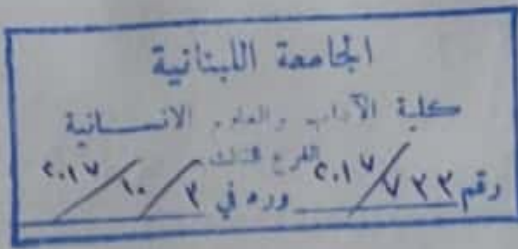 الجامعة اللبنانية
كلية الآداب والعلوم الانسانية
الفرع الثالث
رقم ٧٣٣/٢٠١٧ ورد في ٣/١٠/٢٠١٧